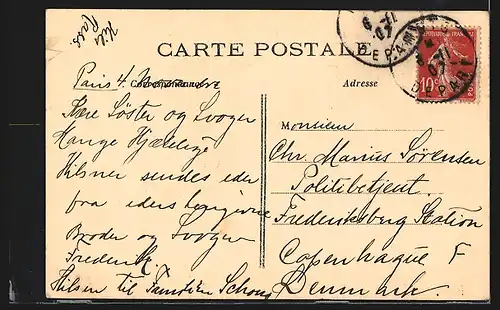 Hils
CARTE POSTALE
6 -11
07
DEPART
REPUBLIQUE FRANÇAISE
10c
DEPART
Paris 4.
Correspondance
Adresse
Kære Söster og Svoger
Mange Hjærtelige
Hilsner sendes eder
fra eders hengivne
Broder og Svoger
Frederik
Hilsen til Familien Schou
Monsieur
Chr. Marius Sørensen
Politibetjent.
Frederiksberg Station
Copenhague F
Denmark.